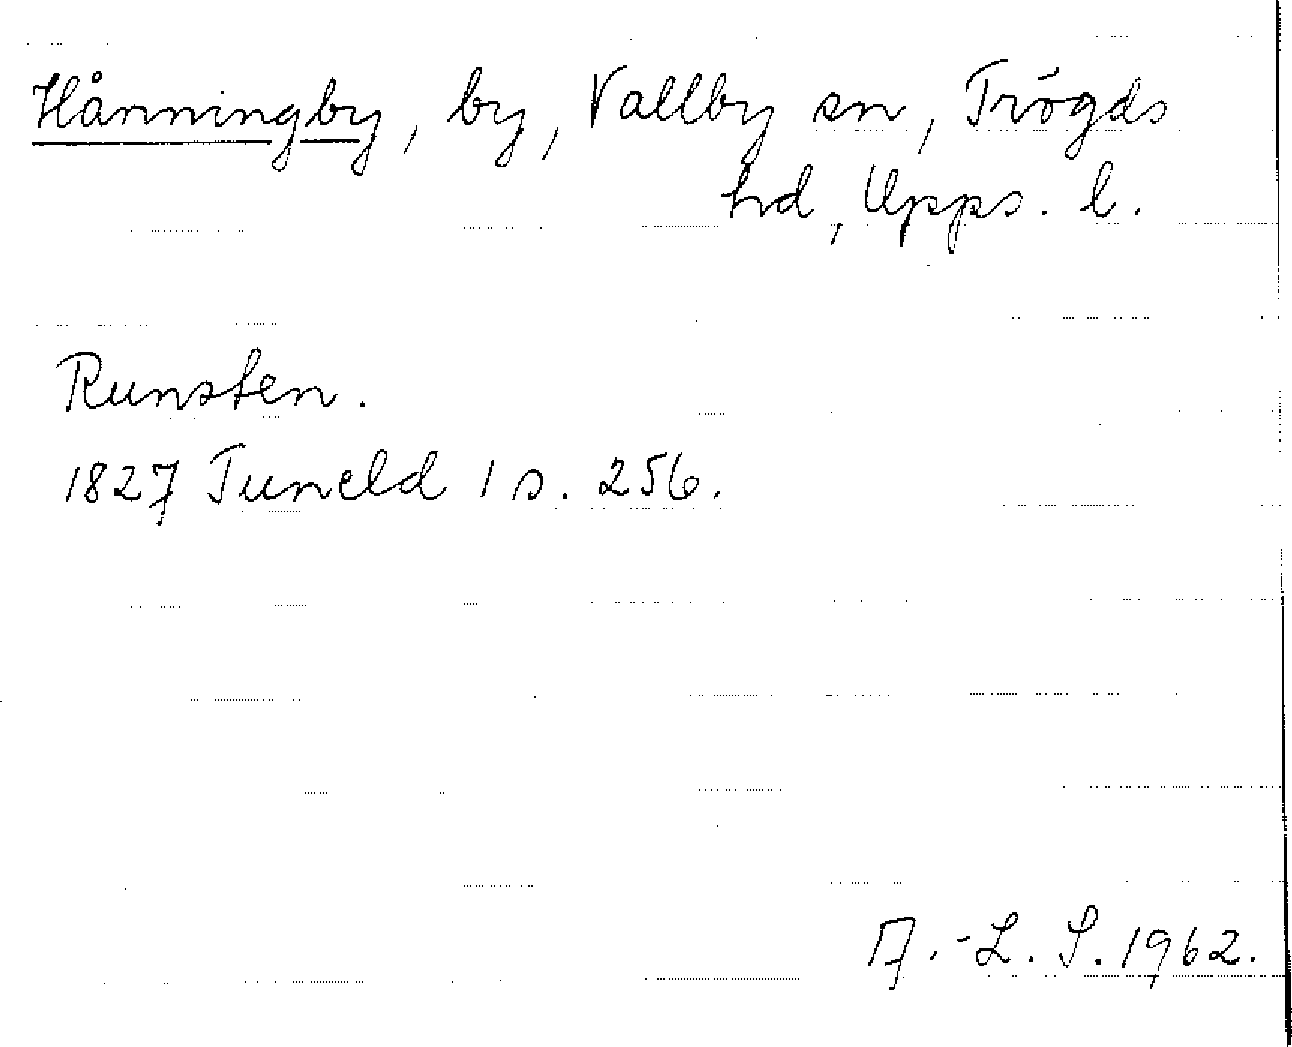 Hånningby, by, Vallby sn, Trögds
hd, Upps. l.
Runsten.
1827 Tuneld 1 s. 256.
A.-L. S. 1962.